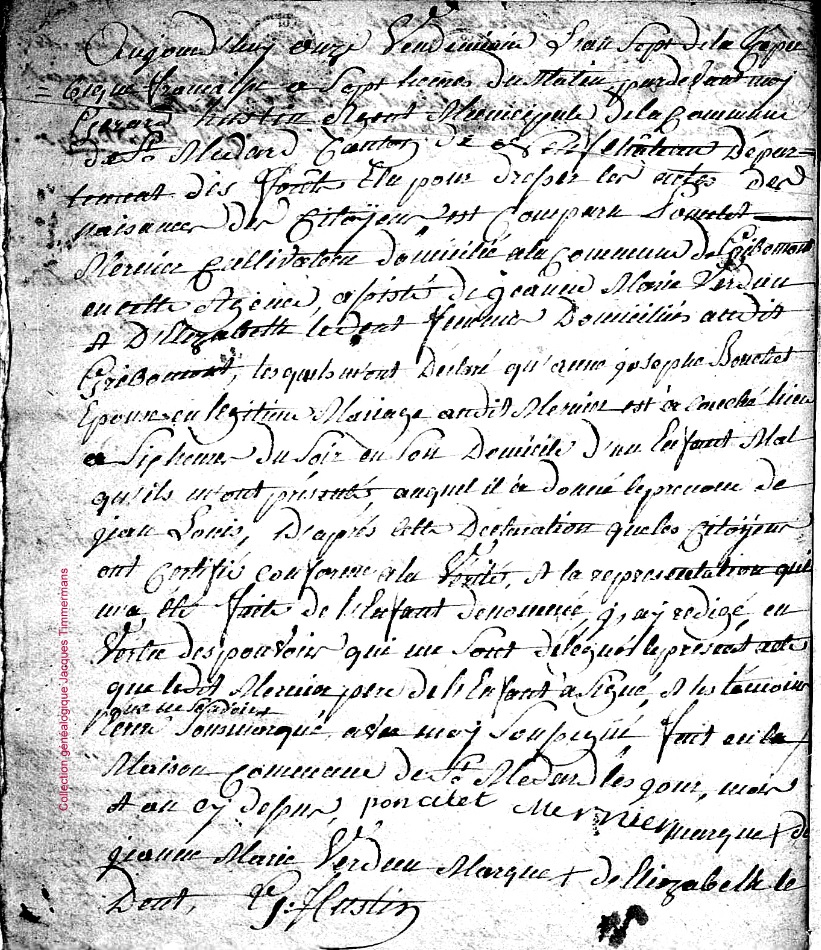 Aujourd'huy onze Vendemiaire L'an Sept de la Repu
= blique française a Sept heures du Matin, pardevant moy
Gerard Hustin Agent Municipale de la Commune
de St Medard Canton de Neufchâteau Dépar=
tement des forêts Elu pour dresser les actes des
naisances des Citoÿens est Comparu Poncelet
Mernier Cultivateur domicilié a la Commune de Gribomont
en cette Agence, assisté de jeanne Marie Verdun
et D'Elizabeth ledent femmes Domiciliés audit
Gribomont, lesquels m'ont Déclaré qu'anne josephe Bouchet
Epouse en legitime Mariage audit Mernier est accouché hier
a Six heures du Soir en Son Domicile d'un Enfant Mal
qu'ils m'ont présentés, auquel il a donné le prenom de
jean Louis, D'aprés cette Declaration que les Citoÿens
ont Certifié conforme a la Verité, et la representation qui
m'a été faite de l'Enfant denommé, j'ay redigé, en
Vertu des pouvoirs qui me Sont délégué le present acte
que ledit Mernier pere de l'Enfant a Signé, et les témoins
leurs Sousmarqué avec moy Soussigné, fait en la
Maison Commune de St Medard les jour, mois
et an cy dessus, poncelet Mernier marque + de
jeanne Marie Verdun Marque + de Elizabeth le
Dent, G. Hustin
Collection généalogique Jacques Timmermans